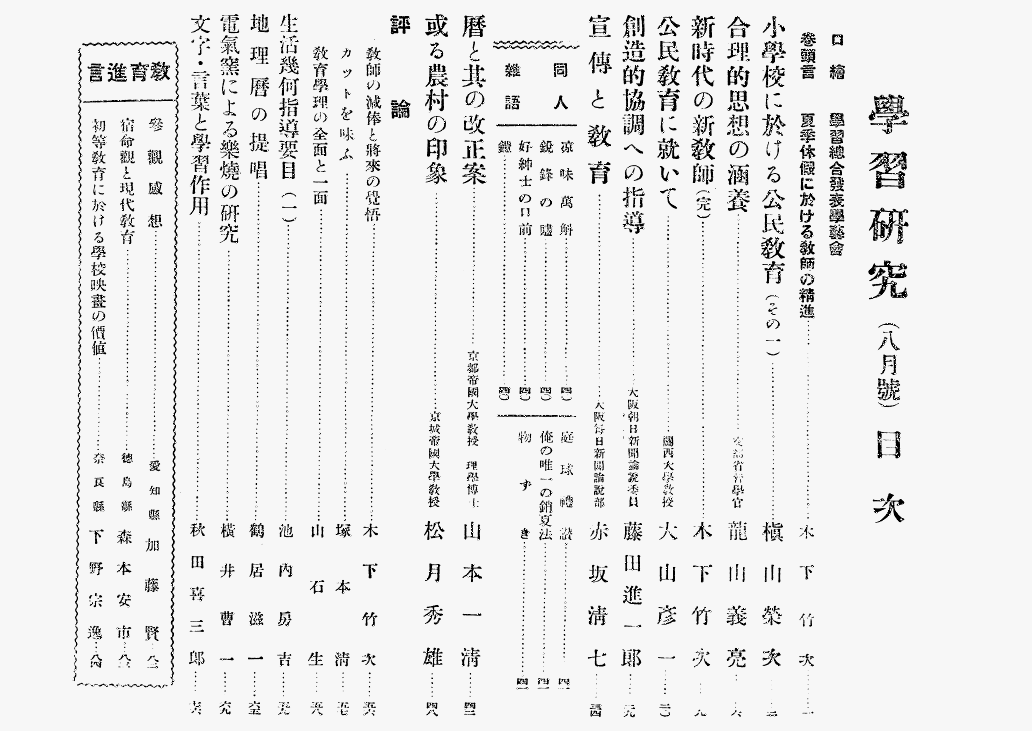 學習研究（八月號）目次
口繪 學習總合發表學藝會
卷頭言 夏季休假に於ける教師の精進……木下竹次……一
小學校に於ける公民教育（その一）……槇山榮次……三
合理的思想の涵養……督學官 龍山義亮……六
新時代の新教師（完）……木下竹次……九
公民教育に就いて……關西大學教授 大山彥一……二〇
創造的協調への指導……大阪朝日新聞論說委員 藤田進一郎……二九
宣傳と教育……大阪每日新聞論說部 赤坂淸七……三四
同人雜語
凉味萬斛……（四〇）
銳鋒の噓……（四〇）
好紳士の口前……（四〇）
鏡……（四〇）
庭球禮讃……四一
俺の唯一の銷夏法……四一
物ずき……四一
曆と其の改正案……京都帝國大學教授 理學博士 山本一淸……四三
或る農村の印象……京城帝國大學教授 松月秀雄……四八
評論
教師の減俸と將來の覺悟……木下竹次……五六
カットを味ふ……塚本淸……五七
教育學理の全面と一面……山石生……五八
生活幾何指導要目（一）……池內房吉……五九
地理曆の提唱……鶴居滋一……六三
電氣窯による樂燒の硏究……橫井曹一……六九
文字・言葉と學習作用……秋田喜三郎……七六
教育進言
參觀感想……愛知縣 加藤賢……八二
宿命觀と現代教育……德島縣 森本安市……八六
初等教育に於ける學校映畫の價値……奈良縣 下野宗逸……八九